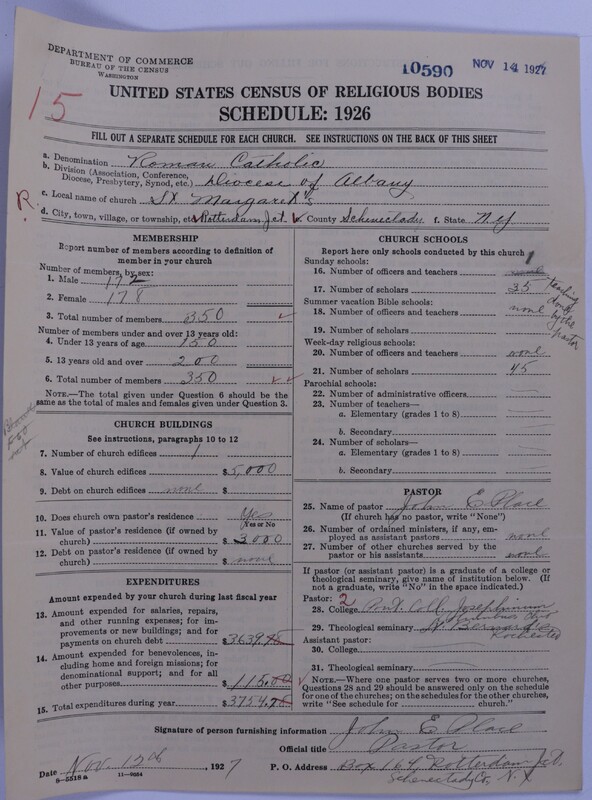 DEPARTMENT OF COMMERCE
BUREAU OF THE CENSUS
WASHINGTON
10590 NOV 14 1927
15
UNITED STATES CENSUS OF RELIGIOUS BODIES
SCHEDULE: 1926
FILL OUT A SEPARATE SCHEDULE FOR EACH CHURCH. SEE INSTRUCTIONS ON THE BACK OF THIS SHEET
a. Denomination Roman Catholic
b. Division (Association, Conference, Diocese, Presbytery, Synod, etc.) Diocese of Albany
R. c. Local name of church St. Margaret's
d. City, town, village, or township, etc. Rotterdam Jct. e. County Schenectady f. State N.Y.
MEMBERSHIP
Report number of members according to definition of
member in your church
Number of members, by sex:
1. Male 172
2. Female 178
3. Total number of members 350
Number of members under and over 13 years old:
4. Under 13 years of age 150
5. 13 years old and over 200
6. Total number of members 350
NOTE.—The total given under Question 6 should be the
same as the total of males and females given under Question 3.
CHURCH BUILDINGS
See instructions, paragraphs 10 to 12
7. Number of church edifices 1
8. Value of church edifices $5,000
9. Debt on church edifices none $
10. Does church own pastor's residence Yes
(Yes or No)
11. Value of pastor's residence (if owned by
church) $3000
12. Debt on pastor's residence (if owned by
church) $ none
EXPENDITURES
Amount expended by your church during last fiscal year
13. Amount expended for salaries, repairs,
and other running expenses; for im-
provements or new buildings; and for
payments on church debt $3639.75
14. Amount expended for benevolences,
including home and foreign missions; for
denominational support; and for all
other purposes $115.00
15. Total expenditures during year $3754.75
CHURCH SCHOOLS
Report here only schools conducted by this church
Sunday schools:
16. Number of officers and teachers 1
17. Number of scholars 35
teaching
done
by the
pastor
Summer vacation Bible schools:
18. Number of officers and teachers none
19. Number of scholars
Week-day religious schools:
20. Number of officers and teachers none
21. Number of scholars 45
Parochial schools:
22. Number of administrative officers
23. Number of teachers—
a. Elementary (grades 1 to 8)
b. Secondary
24. Number of scholars—
a. Elementary (grades 1 to 8)
b. Secondary
PASTOR
25. Name of pastor John E Place
(If church has no pastor, write "None")
26. Number of ordained ministers, if any, em-
ployed as assistant pastors none
27. Number of other churches served by the
pastor or his assistants none
If pastor (or assistant pastor) is a graduate of a college or
theological seminary, give name of institution below. (If
not a graduate, write "No" in the space indicated.)
Pastor: 2
28. College Josephinum
29. Theological seminary St. Bernard's
Rochester
Assistant pastor:
30. College
31. Theological seminary
NOTE.—Where one pastor serves two or more churches,
Questions 28 and 29 should be answered only on the schedule
for one of the churches; on the schedules for the other churches,
write "See schedule for church."
Signature of person furnishing information John E Place
Official title Pastor
Date Nov. 12th, 1927 P. O. Address Box 164 Rotterdam Jct.
8—5518a 11—9204 Schenectady Co. N.Y.